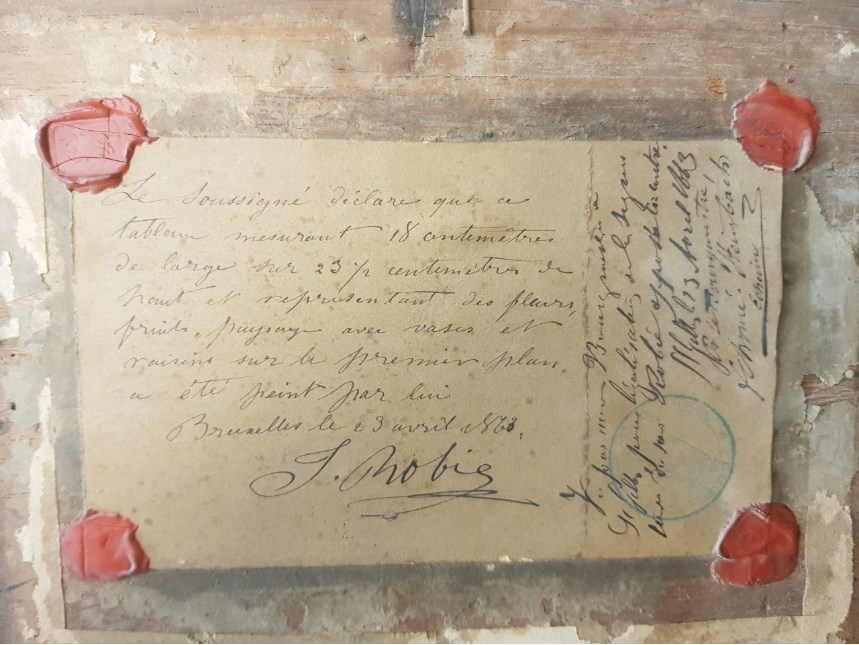 Le soussigné déclare que ce
tableau mesurant 18 centimètres
de large sur 23 1/2 centimètres de
haut et représentant des fleurs,
fruits, paysage avec vases et
raisins sur le premier plan
a été peint par lui
Bruxelles le 23 avril 1863.
J. Robie
Vu par nous Bourgmestre de
St Gilles pour légalisation de la signa
ture de Robie apposée ci contre
23 Avril 1863
Le Bourgmestre